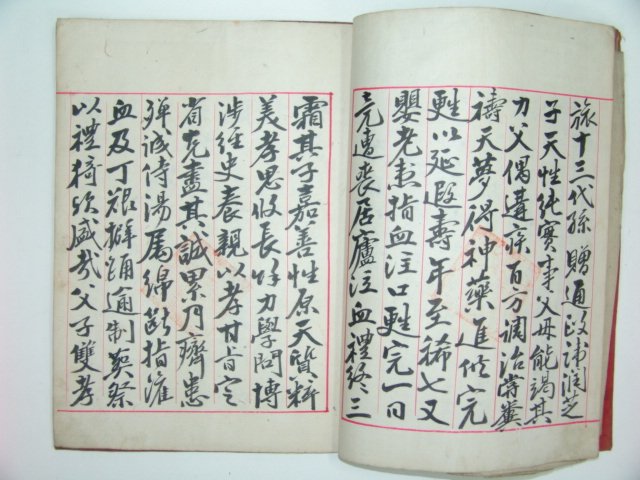 旅十三代孫贈通政諱潤芝
子天性純實事父母能竭其
力父偶遘疾百方調治嘗糞
禱天夢得神藥進作完
甦以延遐壽年至稀七又
嬰老恙指血注口甦完一日
竟遠喪居廬泣血禮終三
霜其子嘉善性原天質粹
美孝思收長好力學問博
涉經史養親以孝甘旨定
省克盡其誠累乃齊患
殫誠侍湯屬綿斷指灌
血及丁艱擗踊逾制葬祭
以禮猗歟盛哉父子雙孝